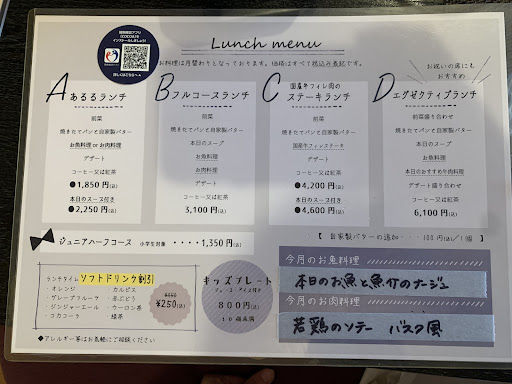 Lunch menu
お料理は月替わりとなっております。価格はすべて税込み表記です。
お祝いの席にも
おすすめ
A あるるランチ
前菜
焼きたてパンと自家製バター
お魚料理 or お肉料理
デザート
コーヒー又は紅茶
●1,850 円(込)
本日のスープ付き
●2,250 円(込)
B フルコースランチ
前菜
焼きたてパンと自家製バター
本日のスープ
お魚料理
お肉料理
デザート
コーヒー又は紅茶
3,100 円(込)
C 国産牛フィレ肉の
ステーキランチ
前菜
焼きたてパンと自家製バター
国産牛フィレステーキ
デザート
コーヒー又は紅茶
●4,200 円(込)
本日のスープ付き
●4,600 円(込)
D エグゼクティブランチ
前菜盛り合わせ
焼きたてパンと自家製バター
本日のスープ
お魚料理
本日のおすすめ牛肉料理
デザート盛り合わせ
コーヒー又は紅茶
6,100 円(込)
ジュニアハーフコース 小学生対象 ・・・・1,350 円(込)
【 自家製バターの追加・・・100円(込)/1個 】
ランチタイム ソフトドリンク割引
・オレンジ ・カルピス
・グレープフルーツ ・赤ぶどう
・ジンジャーエール ・ウーロン茶
・コカコーラ ・緑茶
¥350
¥250(込)
キッズプレート
800円(込)
10歳未満
今月のお魚料理
本日のお魚と魚介のナージュ
今月のお肉料理
若鶏のソテー バスク風
◆アレルギー等はお気軽にご相談ください